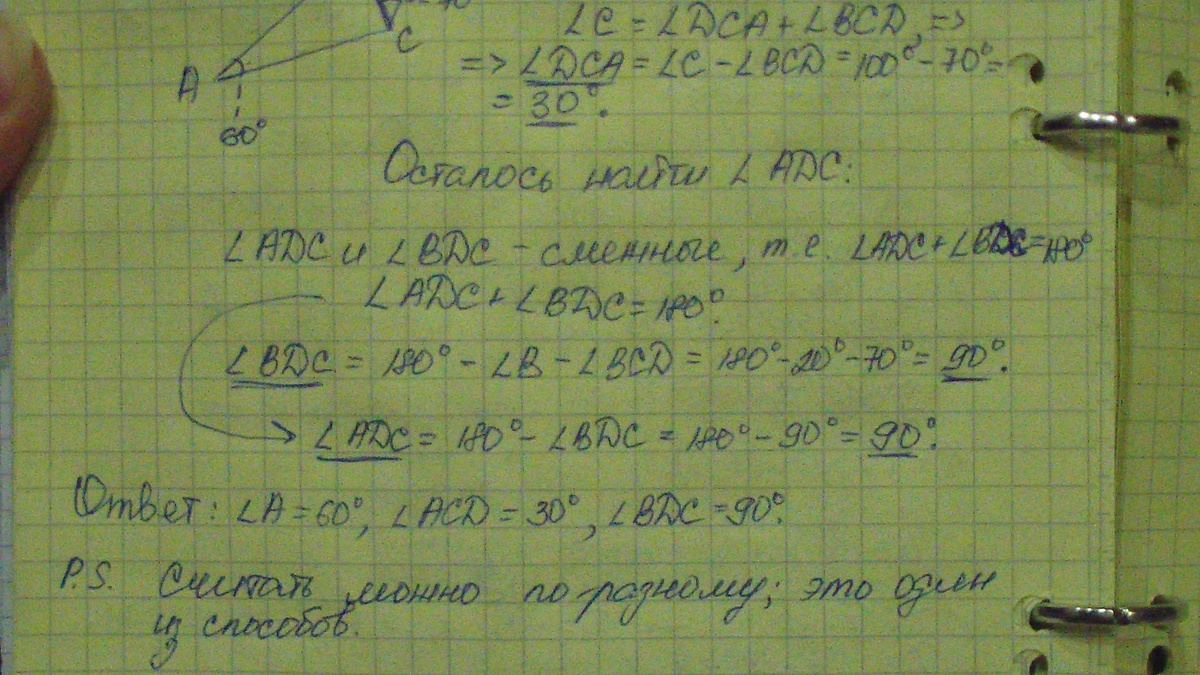 ∠C = ∠DCA + ∠BCD, =>
=> ∠DCA = ∠C - ∠BCD = 100° - 70° =
= 30°.
A
C
60°
Осталось найти ∠ADC:
∠ADC и ∠BDC - смежные, т.е. ∠ADC + ∠BDC = 180°
∠ADC + ∠BDC = 180°.
∠BDC = 180° - ∠B - ∠BCD = 180° - 20° - 70° = 90°.
∠ADC = 180° - ∠BDC = 180° - 90° = 90°.
Ответ: ∠A = 60°, ∠ACD = 30°, ∠BDC = 90°.
P.S. Считать можно по разному; это один
из способов.